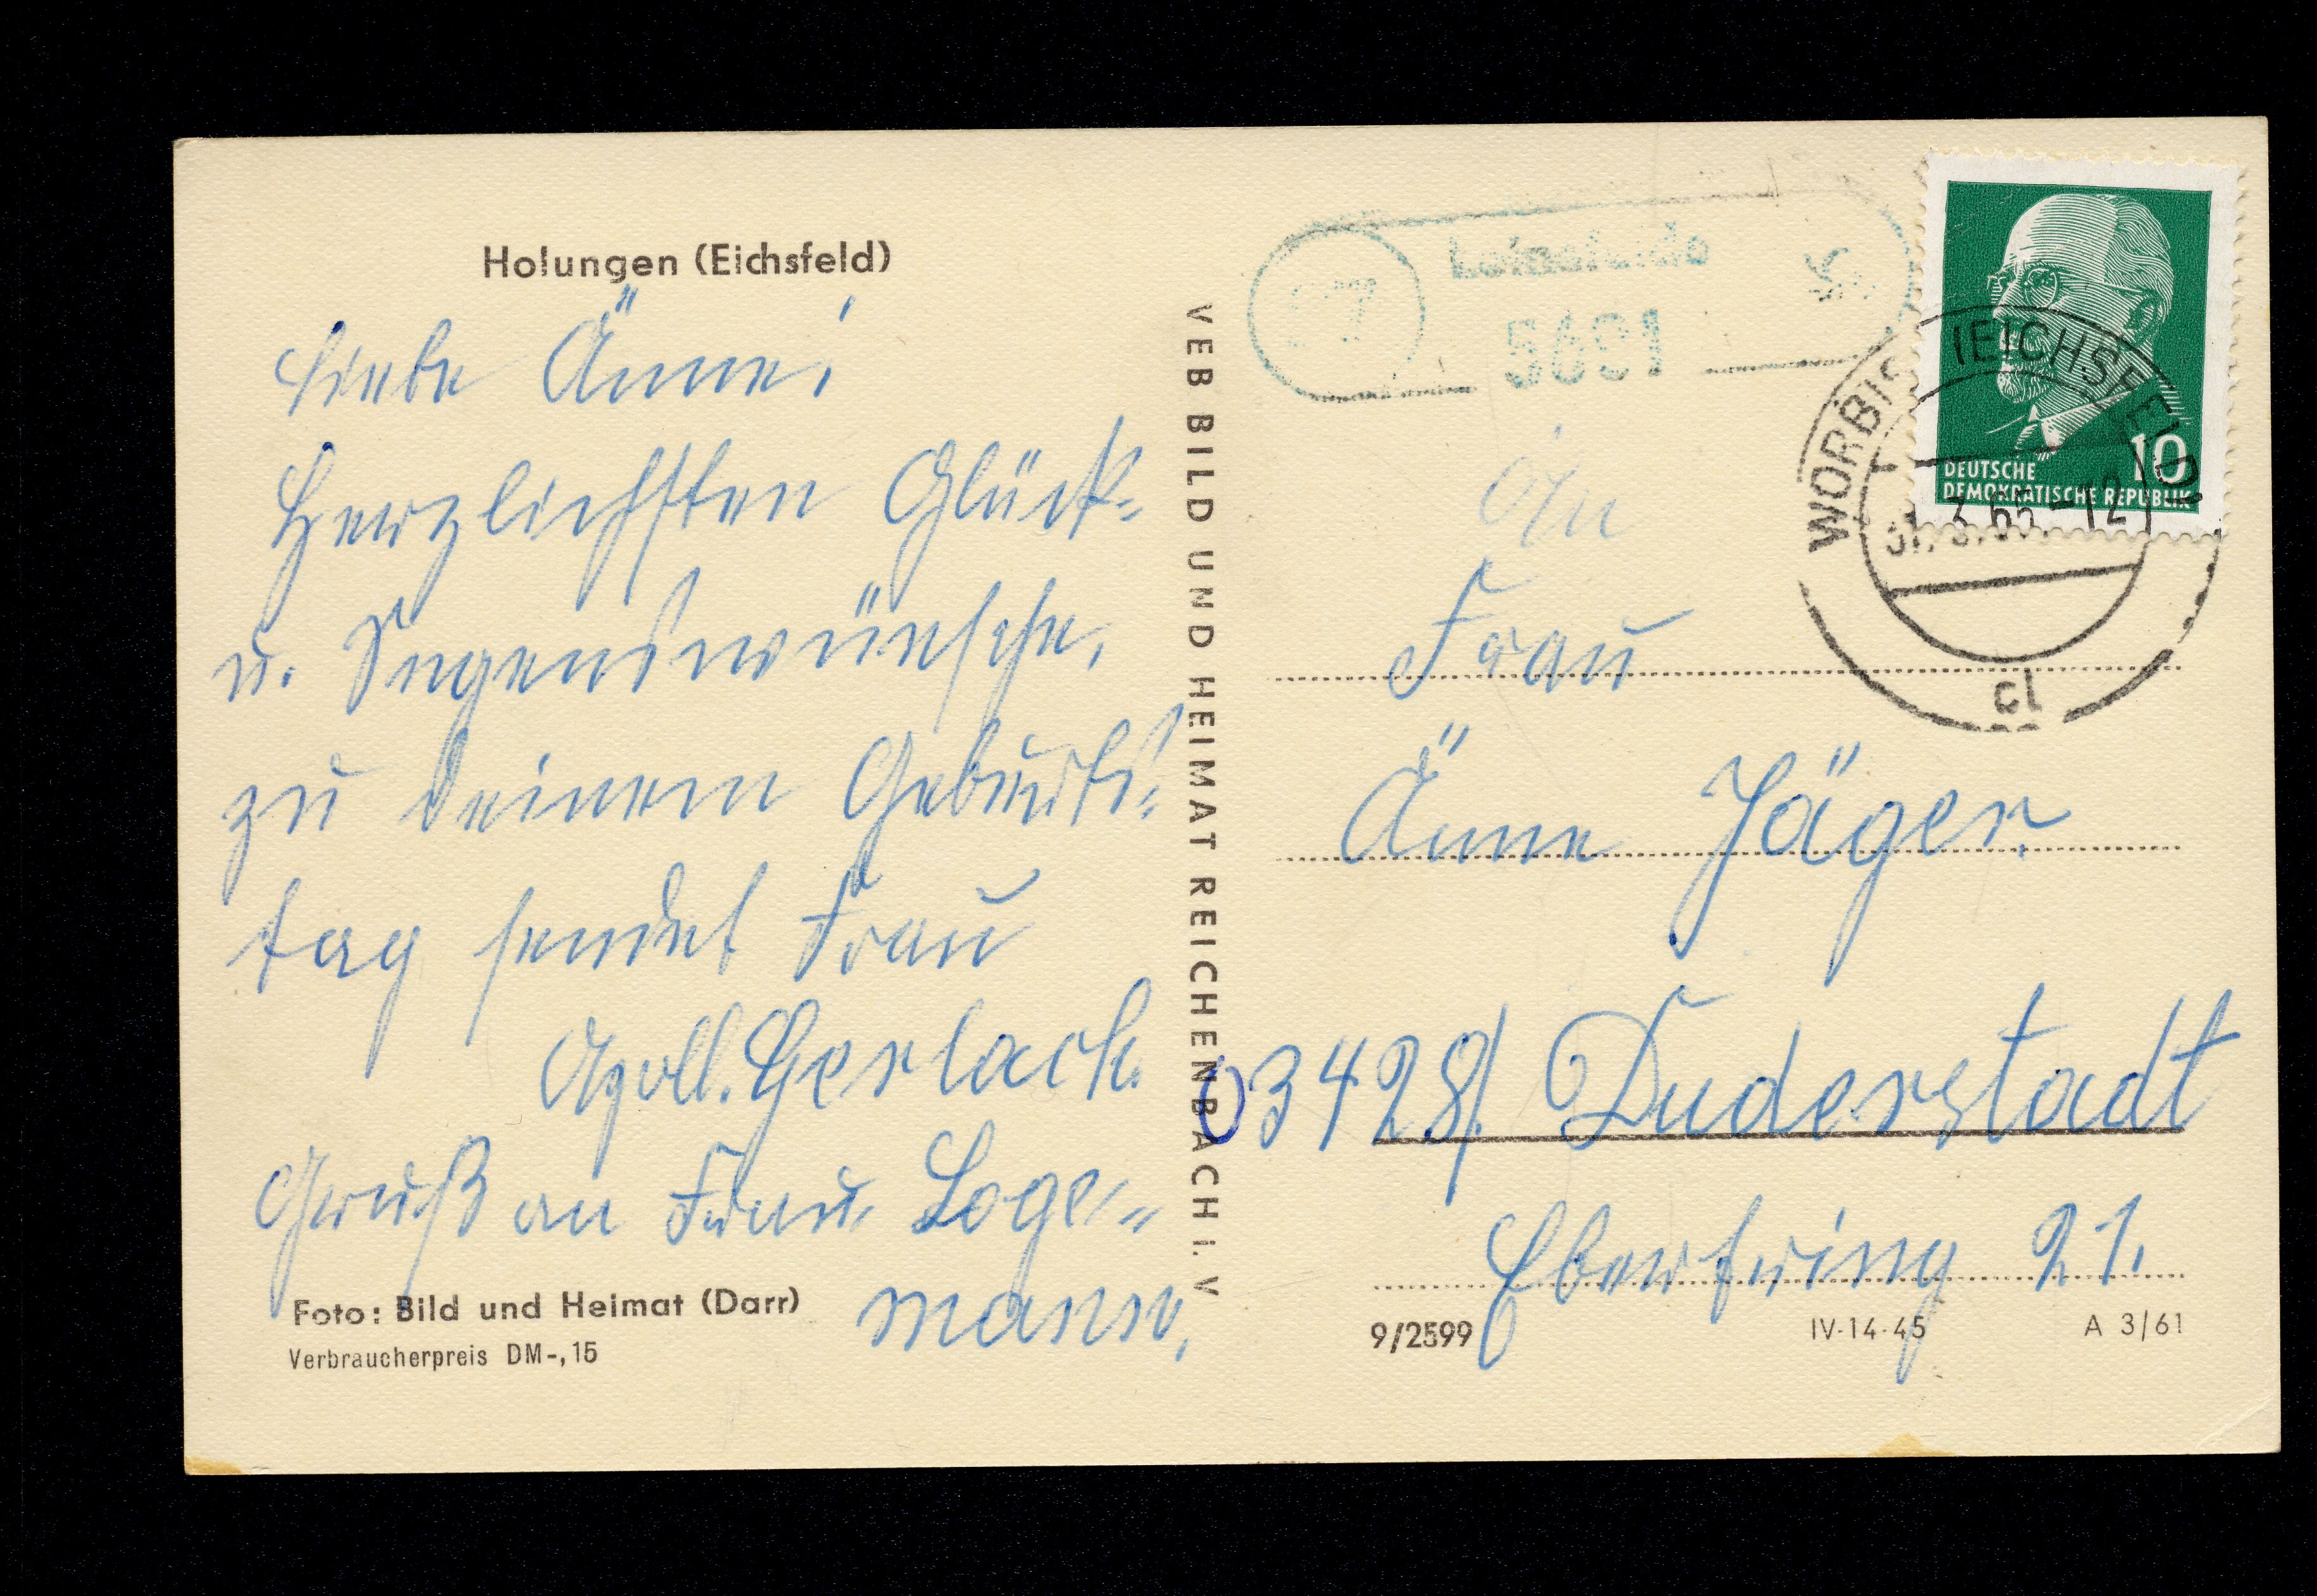 Holungen (Eichsfeld)
Liebe Änne!
Herzlichsten Glück=
u. Segenswünsche,
zu deinem Geburts=
tag sendet Frau
Apoll. Gerlach.
Gruß an Frau Loge=
mann,
Foto: Bild und Heimat (Darr)
Verbraucherpreis DM -,15
VEB BILD UND HEIMAT REICHENBACH I. V
5631
DEUTSCHE
DEMOKRATISCHE REPUBLIK
10
WORBIS (EICHSFELD)
31.3.65.-12
c1
An
Frau
Änne Jäger.
03428/ Duderstadt
Ebertring 21.
9/2599
IV-14-45
A 3/61